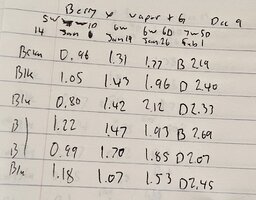 Berry x vapor + G Dec 9
5w 6w 6w 6D 7w 5D
14 Jan Jan 19 Jan 26 Feb 1
0.96 1.31 1.77 B 2.19
Blk 1.05 1.43 1.96 D 2.40
Blu 0.80 1.42 2.12 D 2.33
B 1.22 1.47 1.93 B 2.69
B 0.99 1.70 1.85 D 2.07
Blu 1.18 1.07 1.53 D 2.45